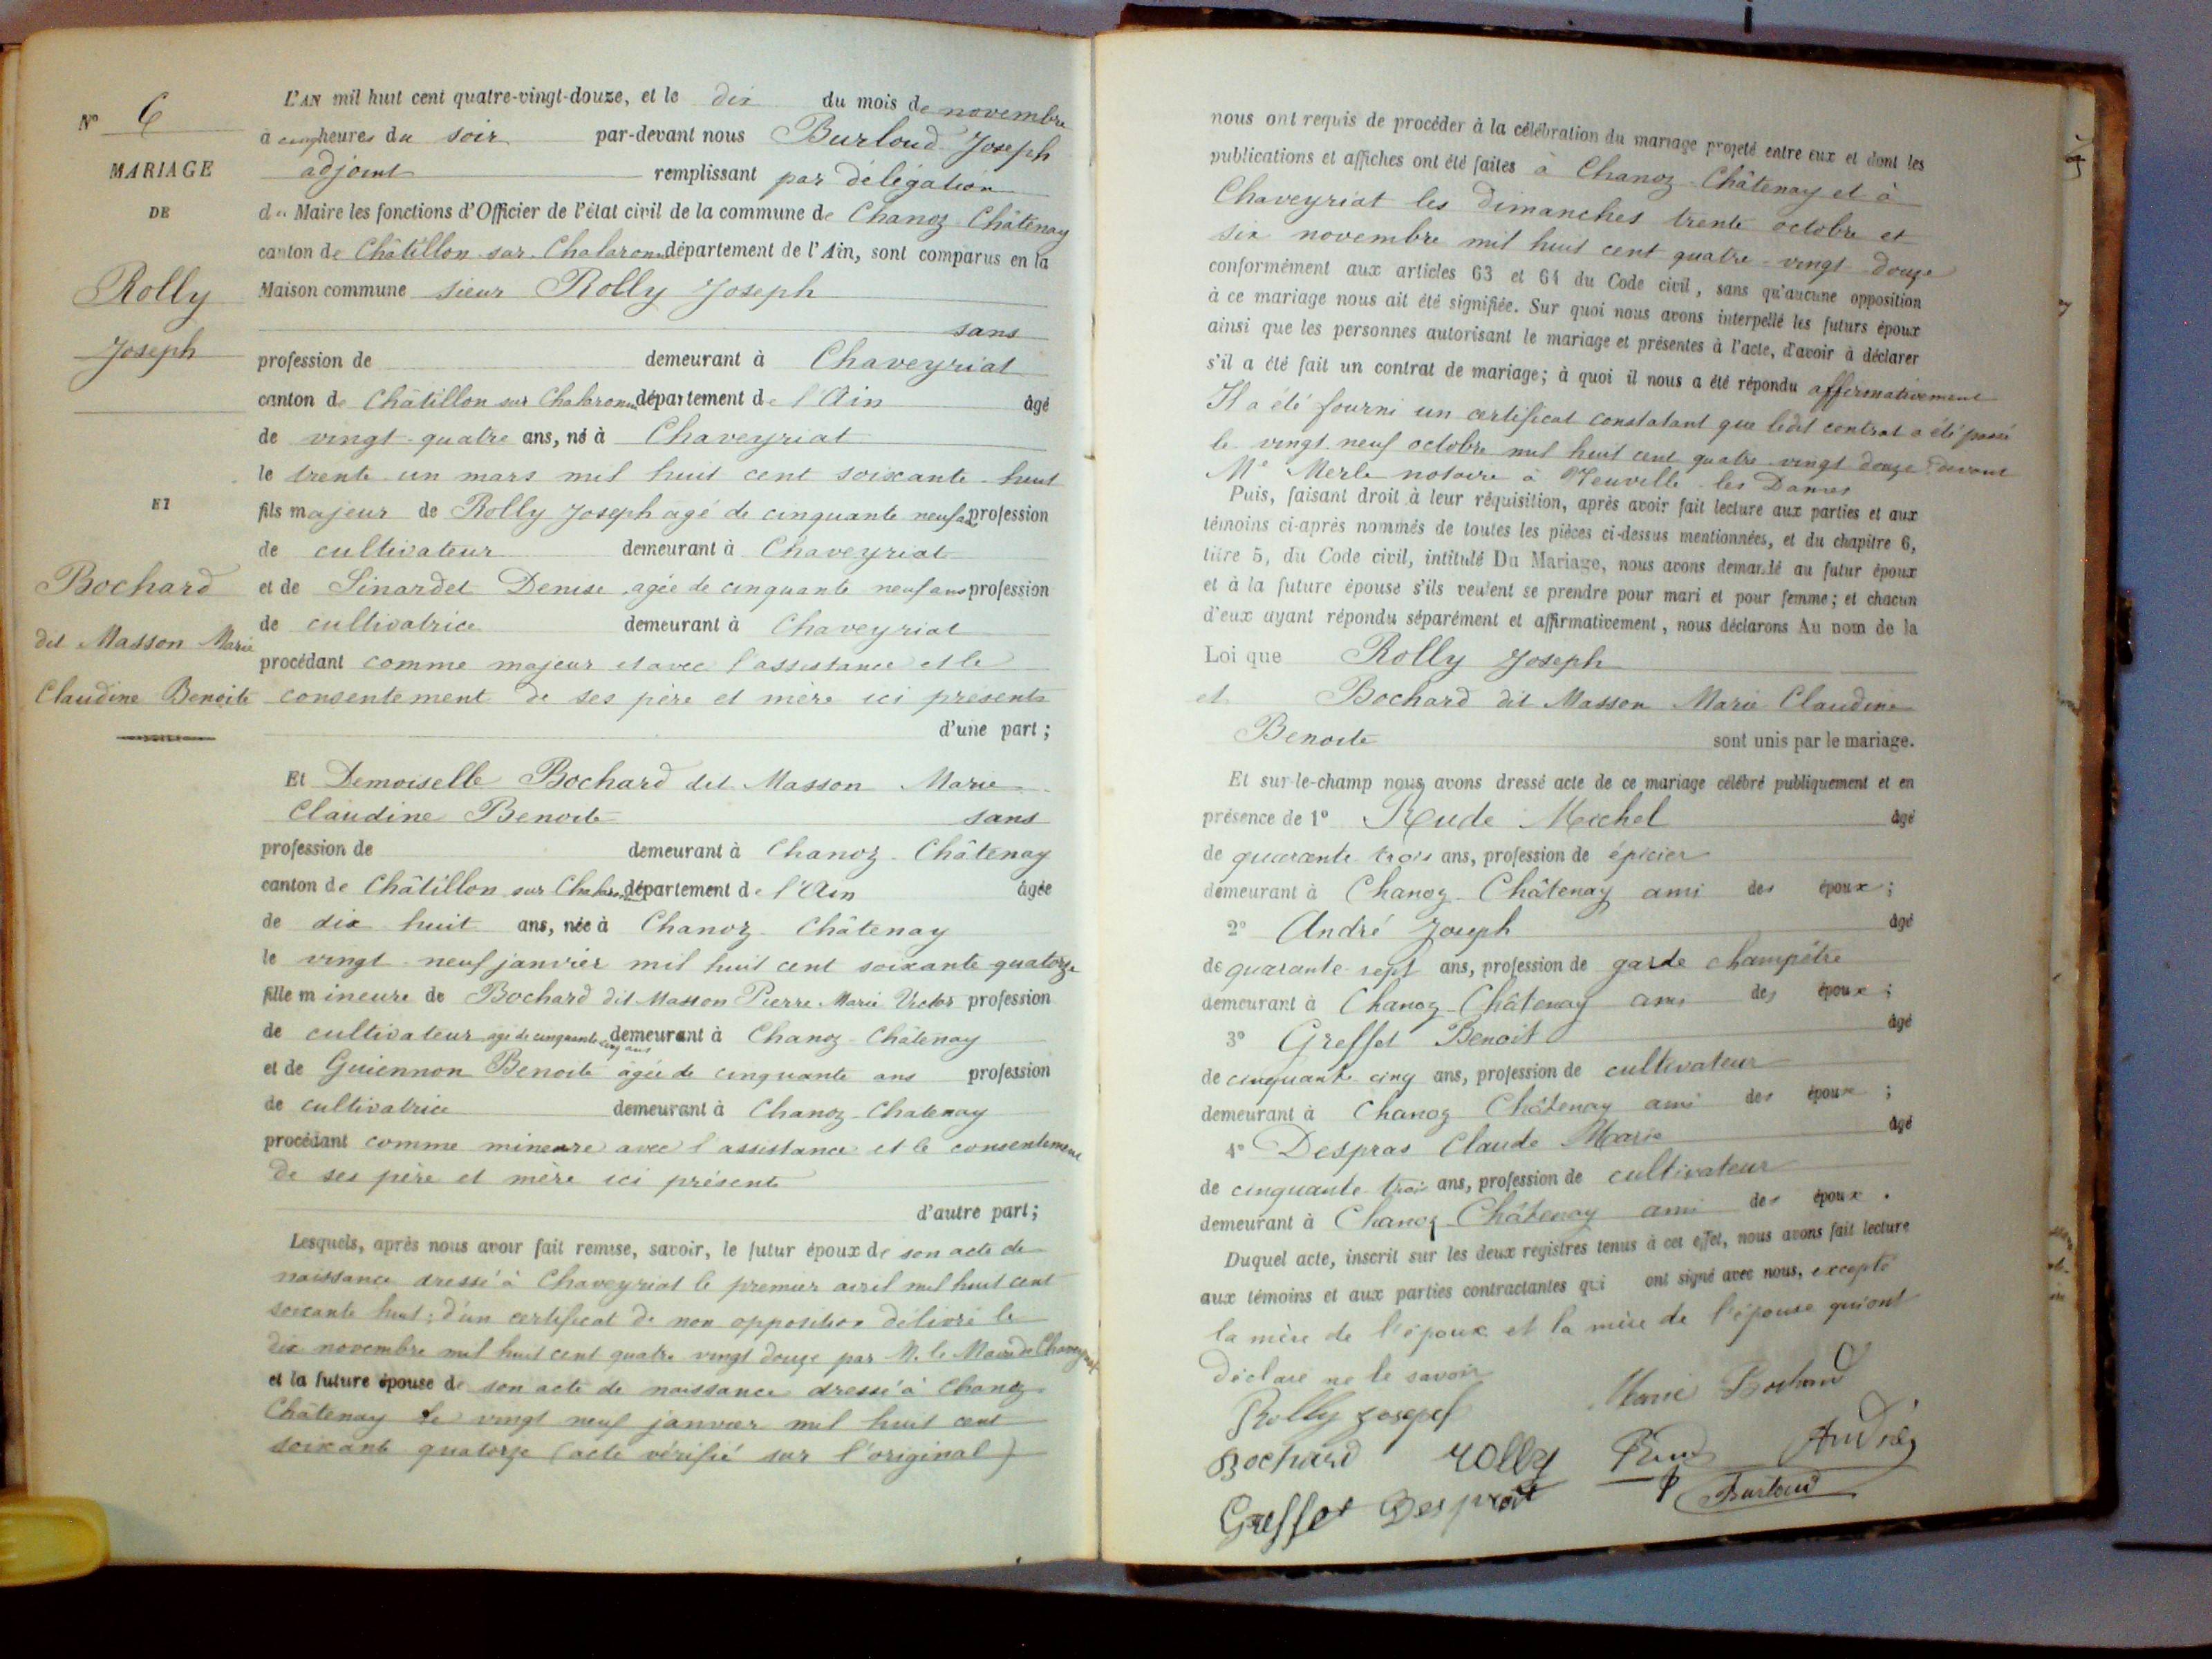 N° 6
MARIAGE
DE
Rolly
Joseph
ET
Bochard
dit Masson Marie
Claudine Benoite
L'AN mil huit cent quatre-vingt-douze, et le dix du mois de novembre
à cinq heures du soir par-devant nous Burloud Joseph
adjoint remplissant par délégation
du Maire les fonctions d'Officier de l'état civil de la commune de Chanoz-Châtenay
canton de Châtillon sur Chalaronne département de l'Ain, sont comparus en la
Maison commune sieur Rolly Joseph
sans
profession de demeurant à Chaveyriat
canton de Châtillon sur Chalaronne département de l'Ain âgé
de vingt-quatre ans, né à Chaveyriat
le trente-un mars mil huit cent soixante-huit
fils majeur de Rolly Joseph agé de cinquante neuf ans profession
de cultivateur demeurant à Chaveyriat
et de Sinardet Denise, agée de cinquante neuf ans profession
de cultivatrice demeurant à Chaveyriat
procédant comme majeur et avec l'assistance et le
consentement de ses père et mère ici présents
d'une part;
Et Demoiselle Bochard dit Masson Marie
Claudine Benoite sans
profession de demeurant à Chanoz-Châtenay
canton de Châtillon sur Chalaronne département de l'Ain âgée
de dix huit ans, née à Chanoz-Châtenay
le vingt-neuf janvier mil huit cent soixante quatorze
fille mineure de Bochard dit Masson Pierre Marie Victor profession
de cultivateur agé de cinquante cinq ans demeurant à Chanoz-Châtenay
et de Guiennon Benoite agée de cinquante ans profession
de cultivatrice demeurant à Chanoz-Chatenay
procédant comme mineure avec l'assistance et le consentement
de ses père et mère ici présents
d'autre part;
Lesquels, après nous avoir fait remise, savoir, le futur époux de son acte de
naissance dressé à Chaveyriat le premier avril mil huit cent
soixante huit; d'un certificat de non opposition délivré le
dix novembre mil huit cent quatre vingt douze par M. le Maire de Chaveyriat
et la future épouse de son acte de naissance dressé à Chanoz
Châtenay le vingt neuf janvier mil huit cent
soixante quatorze (acte vérifié sur l'original)
nous ont requis de procéder à la célébration du mariage projeté entre eux et dont les
publications et affiches ont été faites à Chanoz-Châtenay et à
Chaveyriat les dimanches trente octobre et
six novembre mil huit cent quatre-vingt-douze
conformément aux articles 63 et 64 du Code civil, sans qu'aucune opposition
à ce mariage nous ait été signifiée. Sur quoi nous avons interpellé les futurs époux
ainsi que les personnes autorisant le mariage et présentes à l'acte, d'avoir à déclarer
s'il a été fait un contrat de mariage; à quoi il nous a été répondu affirmativement
Il a été fourni un certificat constatant que ledit contrat a été passé
le vingt neuf octobre mil huit cent quatre vingt douze devant
Me Merle notaire à Neuville-les-Dames
Puis, faisant droit à leur réquisition, après avoir fait lecture aux parties et aux
témoins ci-après nommés de toutes les pièces ci-dessus mentionnées, et du chapitre 6,
titre 5, du Code civil, intitulé Du Mariage, nous avons demandé au futur époux
et à la future épouse s'ils veulent se prendre pour mari et pour femme; et chacun
d'eux ayant répondu séparément et affirmativement, nous déclarons Au nom de la
Loi que Rolly Joseph
et Bochard dit Masson Marie Claudine
Benoite sont unis par le mariage.
Et sur-le-champ nous avons dressé acte de ce mariage célébré publiquement et en
présence de 1° Rude Michel âgé
de quarante-trois ans, profession de épicier
demeurant à Chanoz-Châtenay ami des époux;
2° André Joseph âgé
de quarante-sept ans, profession de garde champêtre
demeurant à Chanoz-Châtenay ami des époux;
3° Greffet Benoit âgé
de cinquante-cinq ans, profession de cultivateur
demeurant à Chanoz Châtenay ami des époux;
4° Despras Claude Marie âgé
de cinquante-trois ans, profession de cultivateur
demeurant à Chanoz-Châtenay ami des époux.
Duquel acte, inscrit sur les deux registres tenus à cet effet, nous avons fait lecture
aux témoins et aux parties contractantes qui ont signé avec nous, excepté
la mère de l'époux et la mère de l'épouse qui ont
déclaré ne le savoir
Rolly Joseph Marie Bochard
Bochard rolly Rude André
Greffet Despras Burloud